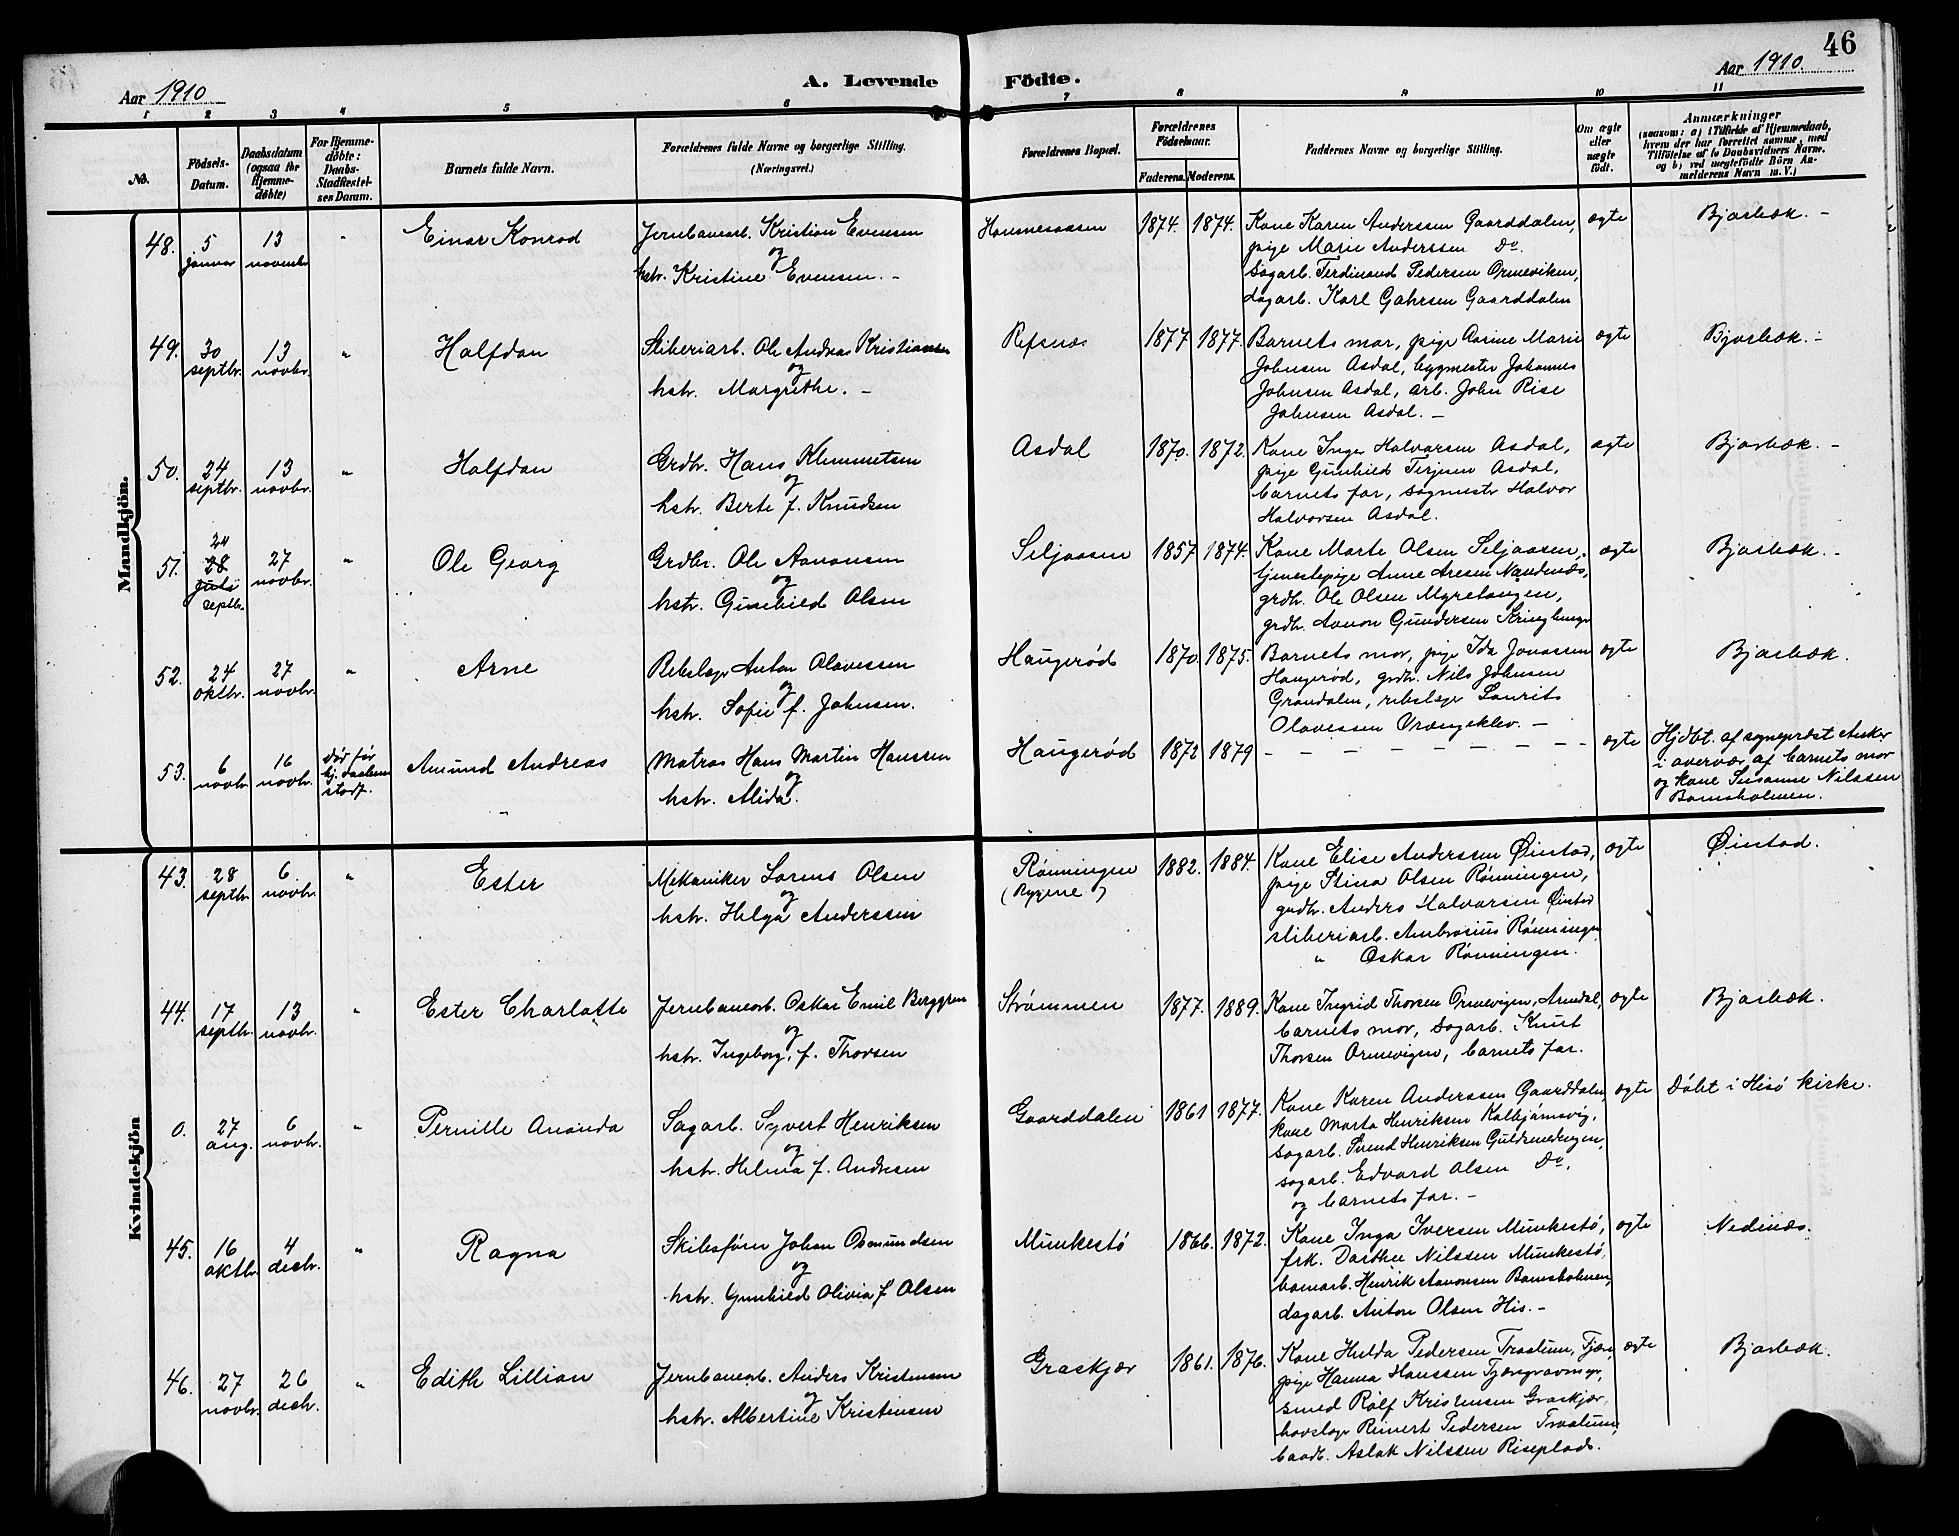 46
Aar 1910
A. Levende Födte.
Aar 1910.
1 2 3 4 5 6 7 8 9 10 11
No.
Födsels-
Datum.
Daabsdatum
(ogsaa for
Hjemme-
døbte)
For Hjemme-
døbte:
Daabs-
Stadfæstel-
ses Datum.
Barnets fulde Navn.
Forældrenes fulde Navne og borgerlige Stilling.
(Næringsvei.)
Forældrenes Bopæl.
Forældrenes
Födselsaar.
Faderens. Moderens.
Faddernes Navne og borgerlige Stilling.
Om ægte
eller
uægte
födt.
Anmærkninger
(saasom: a) i Tilfælde af Hjemmedaab,
hvem der har forrettet samme, med
Tilföielse af to Daabsvidners Navne,
og b) ved uægtefödte Börn An-
melderens Navn m. V.)
Mandkjön.
48. 5 januar 13 novembr " Einar Konrad
Jernbanearb. Kristian Evensen
og
hstr. Kristine Evensen. -
1874. 1874.
Kone Karen Anderssen Gaarddalen,
pige Marie Anderssen Do.
Sagarb. Ferdinand Pedersen Ormeviken,
dagarb. Karl Gahrsen Gaarddalen
ægte Bjorbæk. -
49. 30 septbr. 13 novbr. " Halfdan
Sliberiarb. Ole Andreas Kristiansen
og
hstr. Margrethe. -
Refsnæs 1877 1877.
Barnets mor, pige Aasine Marie
Johnsen Asdal, bygmester Johannes
Johnsen Asdal, arb. John Rise
Johnsen Asdal. -
ægte Bjorbæk. -
50. 24 septbr. 13 novbr. " Halfdan
Grdbr. Hans Klemmetsen
og
hstr. Berte f. Knudsen
Asdal 1870. 1872.
Kone Inger Halvorsen Asdal,
pige Gunhild Terjesen Asdal,
barnets far, sagmestr Halvor
Halvorsen Asdal.
ægte Bjorbæk. -
51. 24 28 juli septbr. 27 novbr. " Ole Georg
Grdbr. Ole Aanonsen
og
hstr. Gunhild Olsen
Seljaasen 1857 1874.
Kone Marte Olsen Seljaasen,
tjenestepige Anne Aresen Nævdenæs,
grdbr. Ole Olsen Myretangen,
grdbr. Aanon Gundersen
ægte Bjorbæk. -
52. 24 oktbr. 27 novbr. " Arne
Rebslagr Anton Olavessen
og
hstr. Sofie f. Johnsen.
Haugerød 1870. 1875.
Barnets mor, pige Ida Jonassen
Haugerød, grdbr. Nils Johnsen
Grandalen, rebslagr Laurits
Olavessen Vrængeklev. -
ægte Bjorbæk.
53. 6 novbr 16 novbr. Død før
hj. daaben
stadf.
Amund Andreas
Matros Hans Martin Hanssen
og
hstr. Alida.
Haugerød 1872 1879 - - - - - - - - -
ægte Hjdbt. af sogneprest Anker
i overvær af barnets mor
og kone Susanne Nilssen
Bomsholmen.
Kvindekjön
43. 28 septbr. 6 novbr. " Ester
Mekaniker Lorens Olsen
og
hstr. Helga Anderssen
Rønningen
(Rygene)
1882. 1884.
Kone Elise Anderssen Øinstad,
pige Stina Olsen Rønningen,
grdbr. Anders Halvorsen Øinstad
sliberiarb. Ambrosius Rønningen
" Oskar Rønningen.
ægte Øinstad.
44. 17 septbr. 13 novbr. " Ester Charlotte
Jernbanearb. Oskar Emil Berggren
og
hstr. Ingeborg, f. Thorsen
Strømmen 1877. 1889.
Kone Ingrid Thorsen Ormevigen, Arendal,
barnets mor, sagarb. Knut
Thorsen Ormevigen, barnets far.
ægte Bjorbæk.
0. 27 aug. 6 novbr. " Pernille Ananda
Sagarb. Syvert Henriksen
og
hstr. Helma f. Andresen
Gaarddalen 1861 1877.
Kone Karen Anderssen Gaarddalen
kone Marta Henriksen Kolbjørnsvig,
sagarb. Svend Henriksen
sagarb. Edvard Olsen Do,
og barnets far. -
ægte Døbt i Hisø kirke.
45. 16 oktbr. 4 desbr. " Ragna
Skibsførn Johan Osmundsen
og
hstr. Gunhild Olivia f. Olsen
Munkestø 1866. 1872.
Kone Inga Iversen Munkestø,
frk. Dorthea Nilssen Munkestø,
bomarb. Henrik Aanonsen Bomsholmen,
dagarb. Anton Olsen His. -
ægte Nedenæs.
46. 27 novbr. 26 desbr. " Edith Lillian
Jernbanearb. Anders Kristensen
og
hstr. Albertine Kristensen
Graskjær 1861. 1876.
Kone Hulda Pedersen Traatum,
pige Hanna Hanssen
smed Rolf Kristensen Graskjær,
hovslagr Reinert Pedersen Traatum,
baadb. Aslak Nilssen Riseplads.
ægte Bjorbæk.